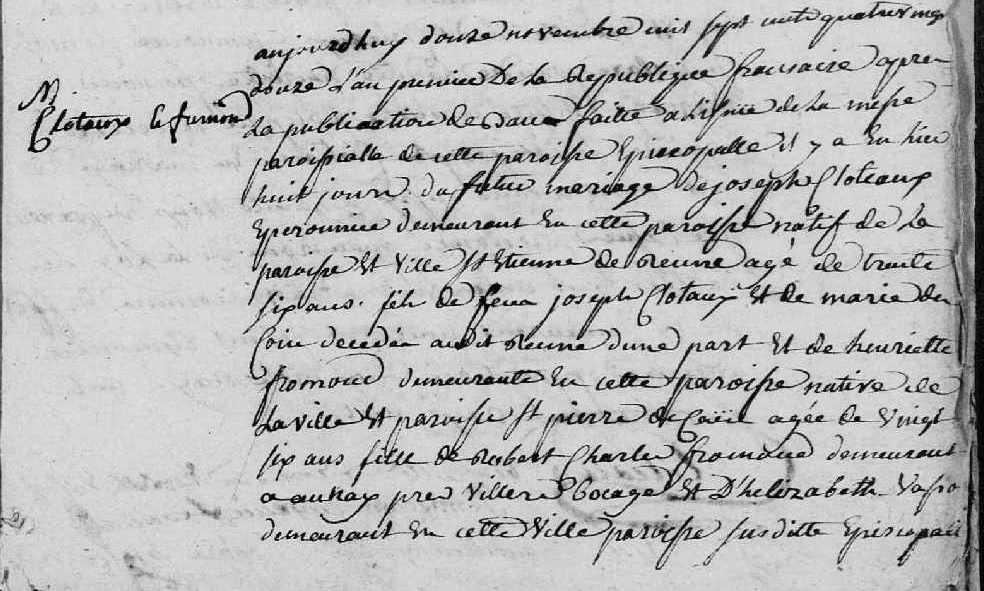 M
Clotaux & fromond
aujourdhuy douze novembre mil sept cents quatrevingt
douze L'an premier De la Republique francaise apres
La publication de Bans faitte a Lissue de La messe
paroissialle de cette paroisse Episcopalle il y a Eu hier
huit jours du futur mariage de joseph Cloteaux
Eperonnier demeurant En cette paroisse natif de la
paroisse Et Ville St Etienne de Renne agé de trente
six ans. fils de feux joseph Clotaux Et de marie du
Coin decedée audit Renne dune part Et de henriette
fromond demeurante En cette paroisse native de
La ville Et paroisse St pierre de Caen agée de Vingt
six ans fille de Robert Charle fromond demeurant
a aunay pres Villers bocage Et D'helizabeth
demeurant En cette Ville paroisse susditte Episcopalle